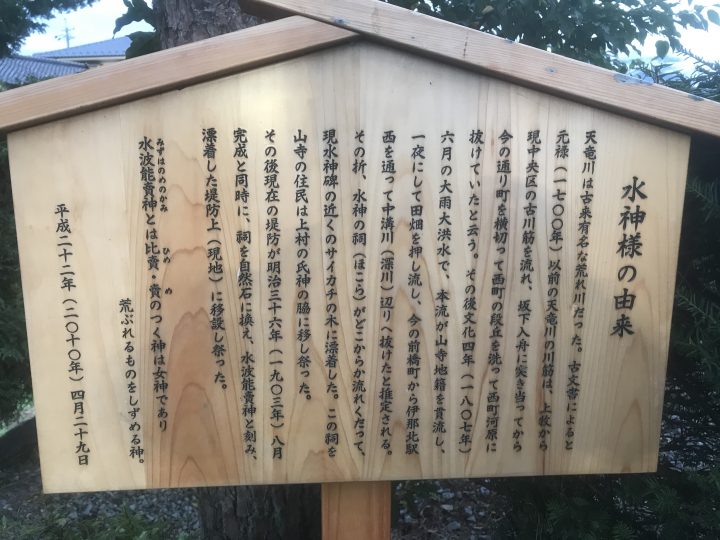 水神様の由来
天竜川は古来有名な荒れ川だった。古文書によると
元禄（一七〇〇年）以前の天竜川の川筋は、上牧から
現中央区の古川筋を流れ、坂下入舟に突き当ってから
今の通り町を横切って西町の段丘を洗って西町河原に
抜けていたと云う。その後文化四年（一八〇七年）
六月の大雨大洪水で、本流が山寺地籍を貫流し、
一夜にして田畑を押し流し、今の前橋町から伊那北駅
西を通って中溝川（深川）辺りへ抜けたと推定される。
その折、水神の祠（ほこら）がどこからか流れくだって、
現水神碑の近くのサイカチの木に漂着した。この祠を
山寺の住民は上村の氏神の脇に移し祭った。
その後現在の堤防が明治三十六年（一九〇三年）八月
完成と同時に、祠を自然石に換え、水波能賣神と刻み、
漂着した堤防上（現地）に移設し祭った。
みずはのめのかみ
水波能賣神とは比賣・賣のつく神は女神であり
ひめ め
荒ぶれるものをしずめる神。
平成二十二年（二〇十〇年）四月二十九日